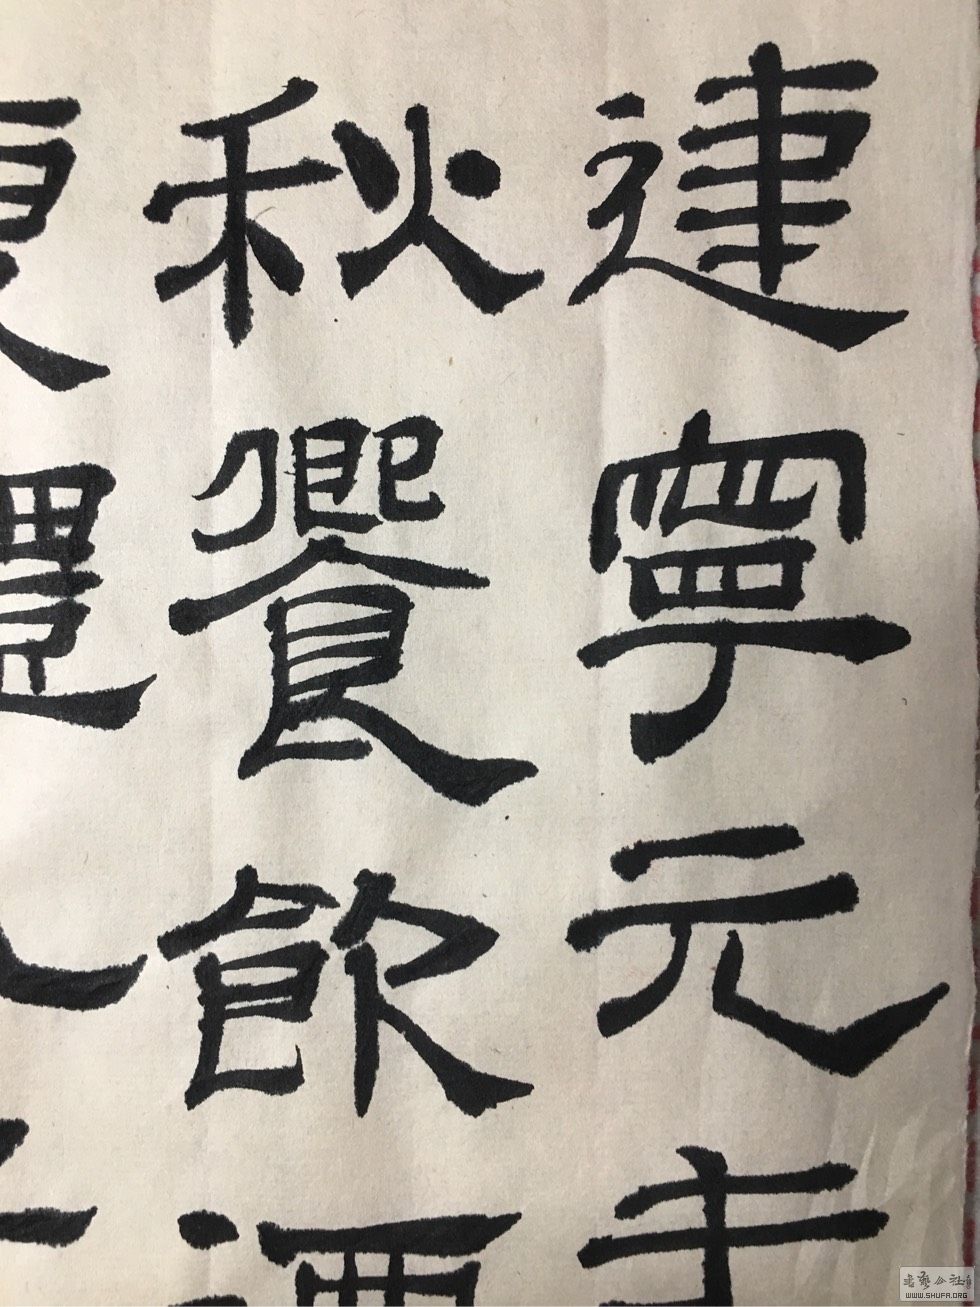 建寧元年
秋饗飲酒
書藝公社
WWW.SHUFA.ORG